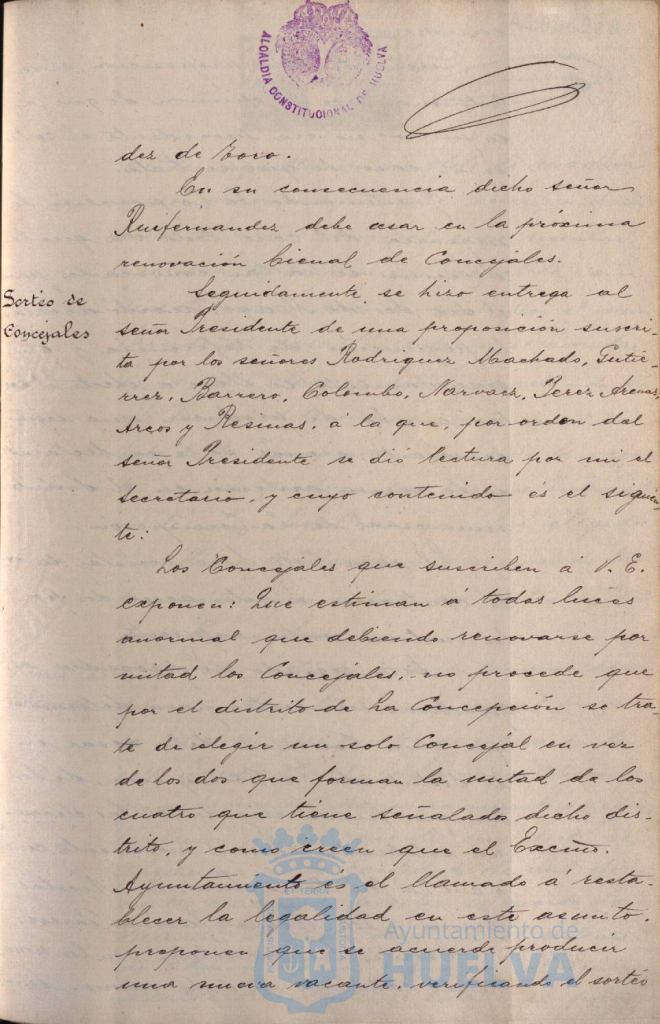 ALCALDIA CONSTITUCIONAL DE HUELVA
dez de Toro.
En su consecuencia dicho señor
Ruifernandez debe cesar en la próxima
renovación bienal de Concejales.
Sortéo de
Concejales
Seguidamente se hizo entrega al
señor Presidente de una proposición suscri-
ta por los señores Rodriguez Machado, Gutie-
rrez, Barrero, Colombo, Narvaez, Perez Arenas,
Arcos y Resinas, á la que, por orden del
señor Presidente se dió lectura por mi el
Secretario, y cuyo contenido és el siguien-
te:
Los Concejales que suscriben á V. E.
exponen: Que estiman á todas luces
anormal que debiendo renovarse por
mitad los Concejales, no procede que
por el distrito de La Concepción se tra-
te de elegir un solo Concejal en vez
de los dos que forman la mitad de los
cuatro que tiene señalados dicho dis-
trito, y como creen que el Excmo.
Ayuntamiento és el llamado á resta-
blecer la legalidad en este asunto,
proponen que se acuerde producir
una nueva vacante, verificando el sortéo
Ayuntamiento de
HUELVA